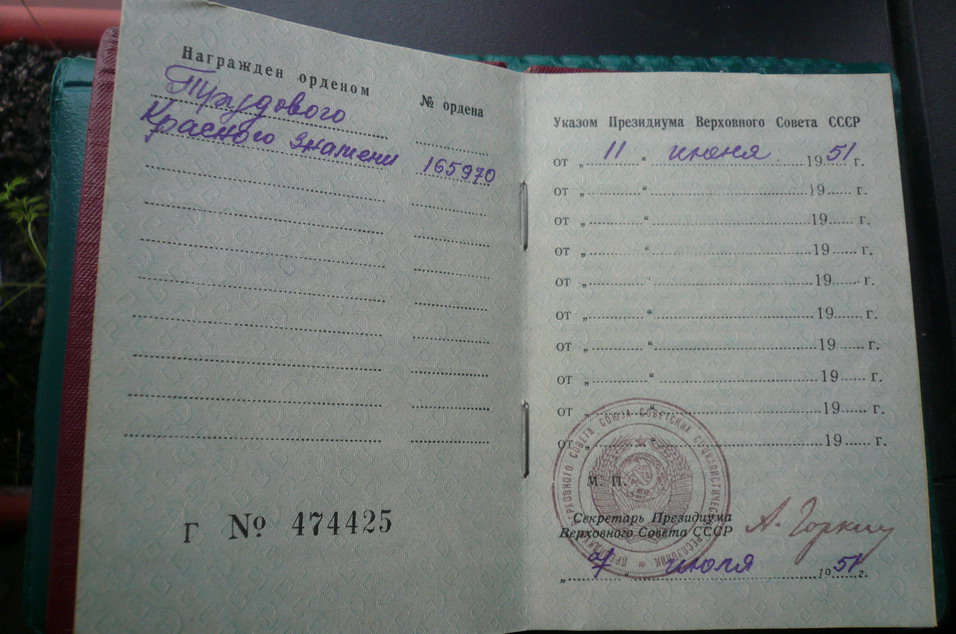 Награжден орденом № ордена
Трудового
Красного Знамени 165970
Г № 474425
Указом Президиума Верховного Совета СССР
от „ 11 “ июня 1951 г.
от „ “ 19 г.
от „ “ 19 г.
от „ “ 19 г.
от „ “ 19 г.
от „ “ 19 г.
от „ “ 19 г.
от „ “ 19 г.
от „ “ 19 г.
от „ “ 19 г.
М. П.
Секретарь Президиума
Верховного Совета СССР
А. Горкин
„ 7 “ июля 1951 г.
ПРЕЗИДИУМ ВЕРХОВНОГО СОВЕТА СОЮЗА СОВЕТСКИХ СОЦИАЛИСТИЧЕСКИХ РЕСПУБЛИК